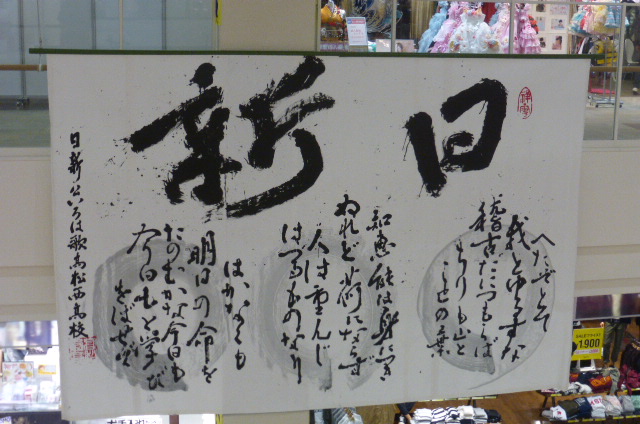 日新
へたぞとて
我とゆるすな
稽古だにつもらば
ちりも山と
ことの葉
知恵能は身につき
ぬれど荷にならず
人は重んじ
はづるものなり
はかなくも
明日の命を
たのむかな今日も
今日もと学び
をばせで
日新公いろは歌 高松西高校
1,900